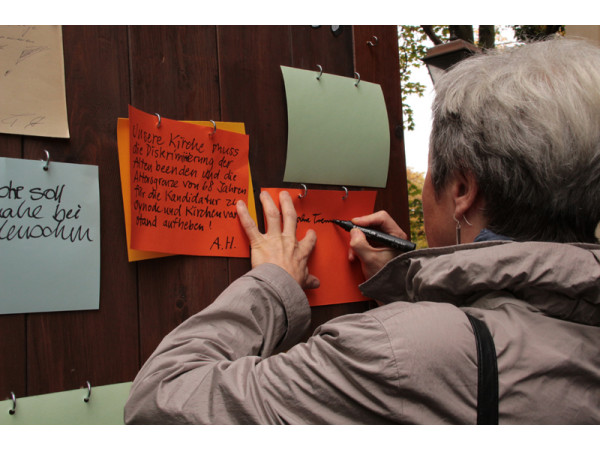 soll
nahe bei
Menschen
Unsere Kirche muss
die Diskriminierung der
Alten beenden und die
Altersgrenze von 68 Jahren
für die Kandidatur zu
Synode und Kirchenvor
stand aufheben!
A.H.